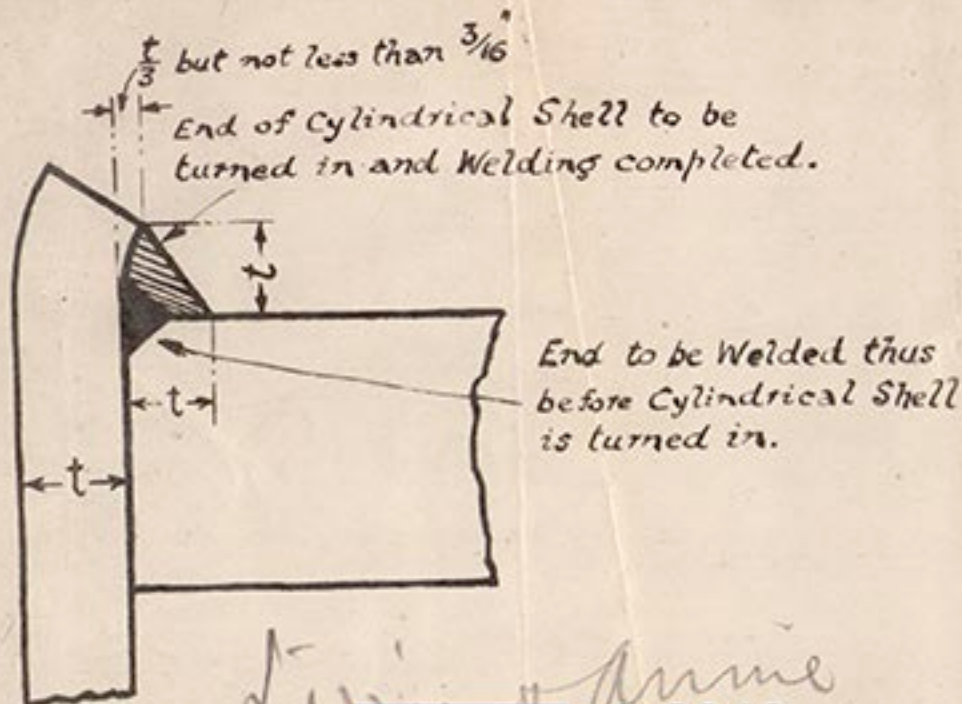 t/3 but not less than 3/16"
End of Cylindrical Shell to be
turned in and Welding completed.
t
End to be Welded thus
before Cylindrical Shell
is turned in.
t
t
Annie